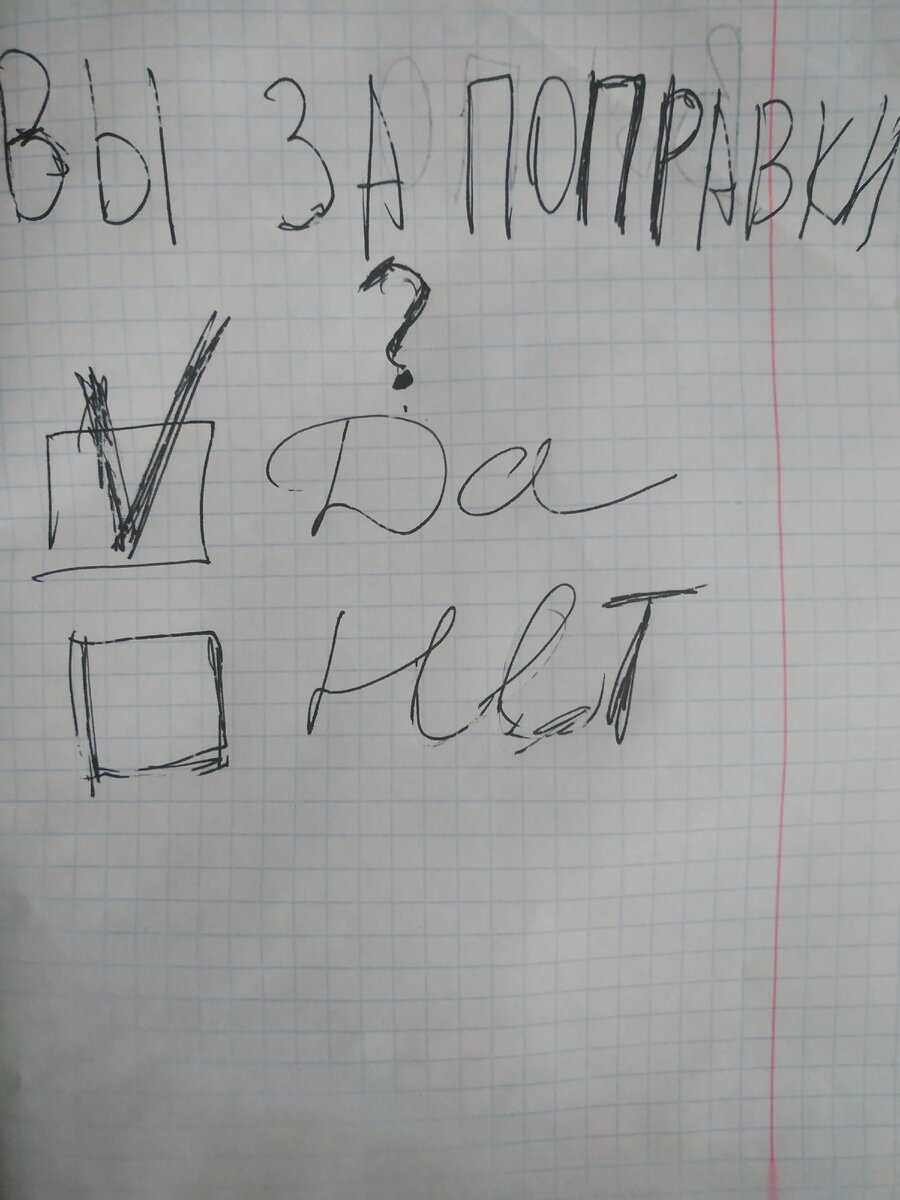 ВЫ ЗА ПОПРАВКИ
?
Да
Нет